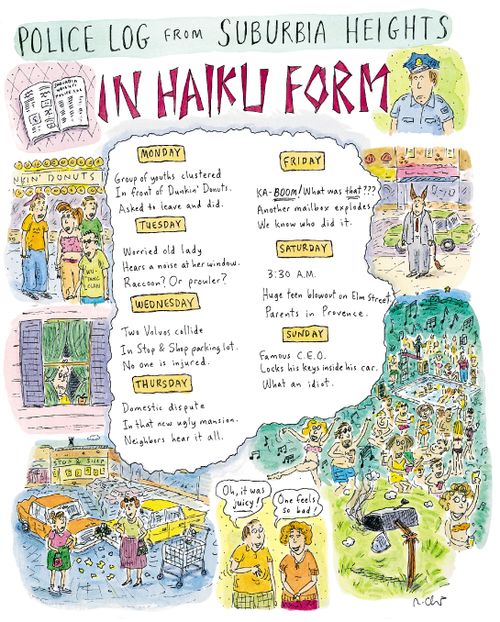 POLICE LOG FROM SUBURBIA HEIGHTS
IN HAIKU FORM
MONDAY
Group of youths clustered
In front of Dunkin' Donuts.
Asked to leave and did.
TUESDAY
Worried old lady
Hears a noise at her window.
Raccoon? Or prowler?
WEDNESDAY
Two Volvos collide
In Stop & Shop parking lot.
No one is injured.
THURSDAY
Domestic dispute
In that new ugly mansion.
Neighbors hear it all.
FRIDAY
KA-BOOM! What was that???
Another mailbox explodes.
We know who did it.
SATURDAY
3:30 A.M.
Huge teen blowout on Elm Street.
Parents in Provence.
SUNDAY
Famous C.E.O.
Locks his keys inside his car.
What an idiot.
NKIN' DONUTS
WU-
TANG
CLAN
STOP & SHOP
Oh, it was
juicy!
One feels
so bad!
R. Chst